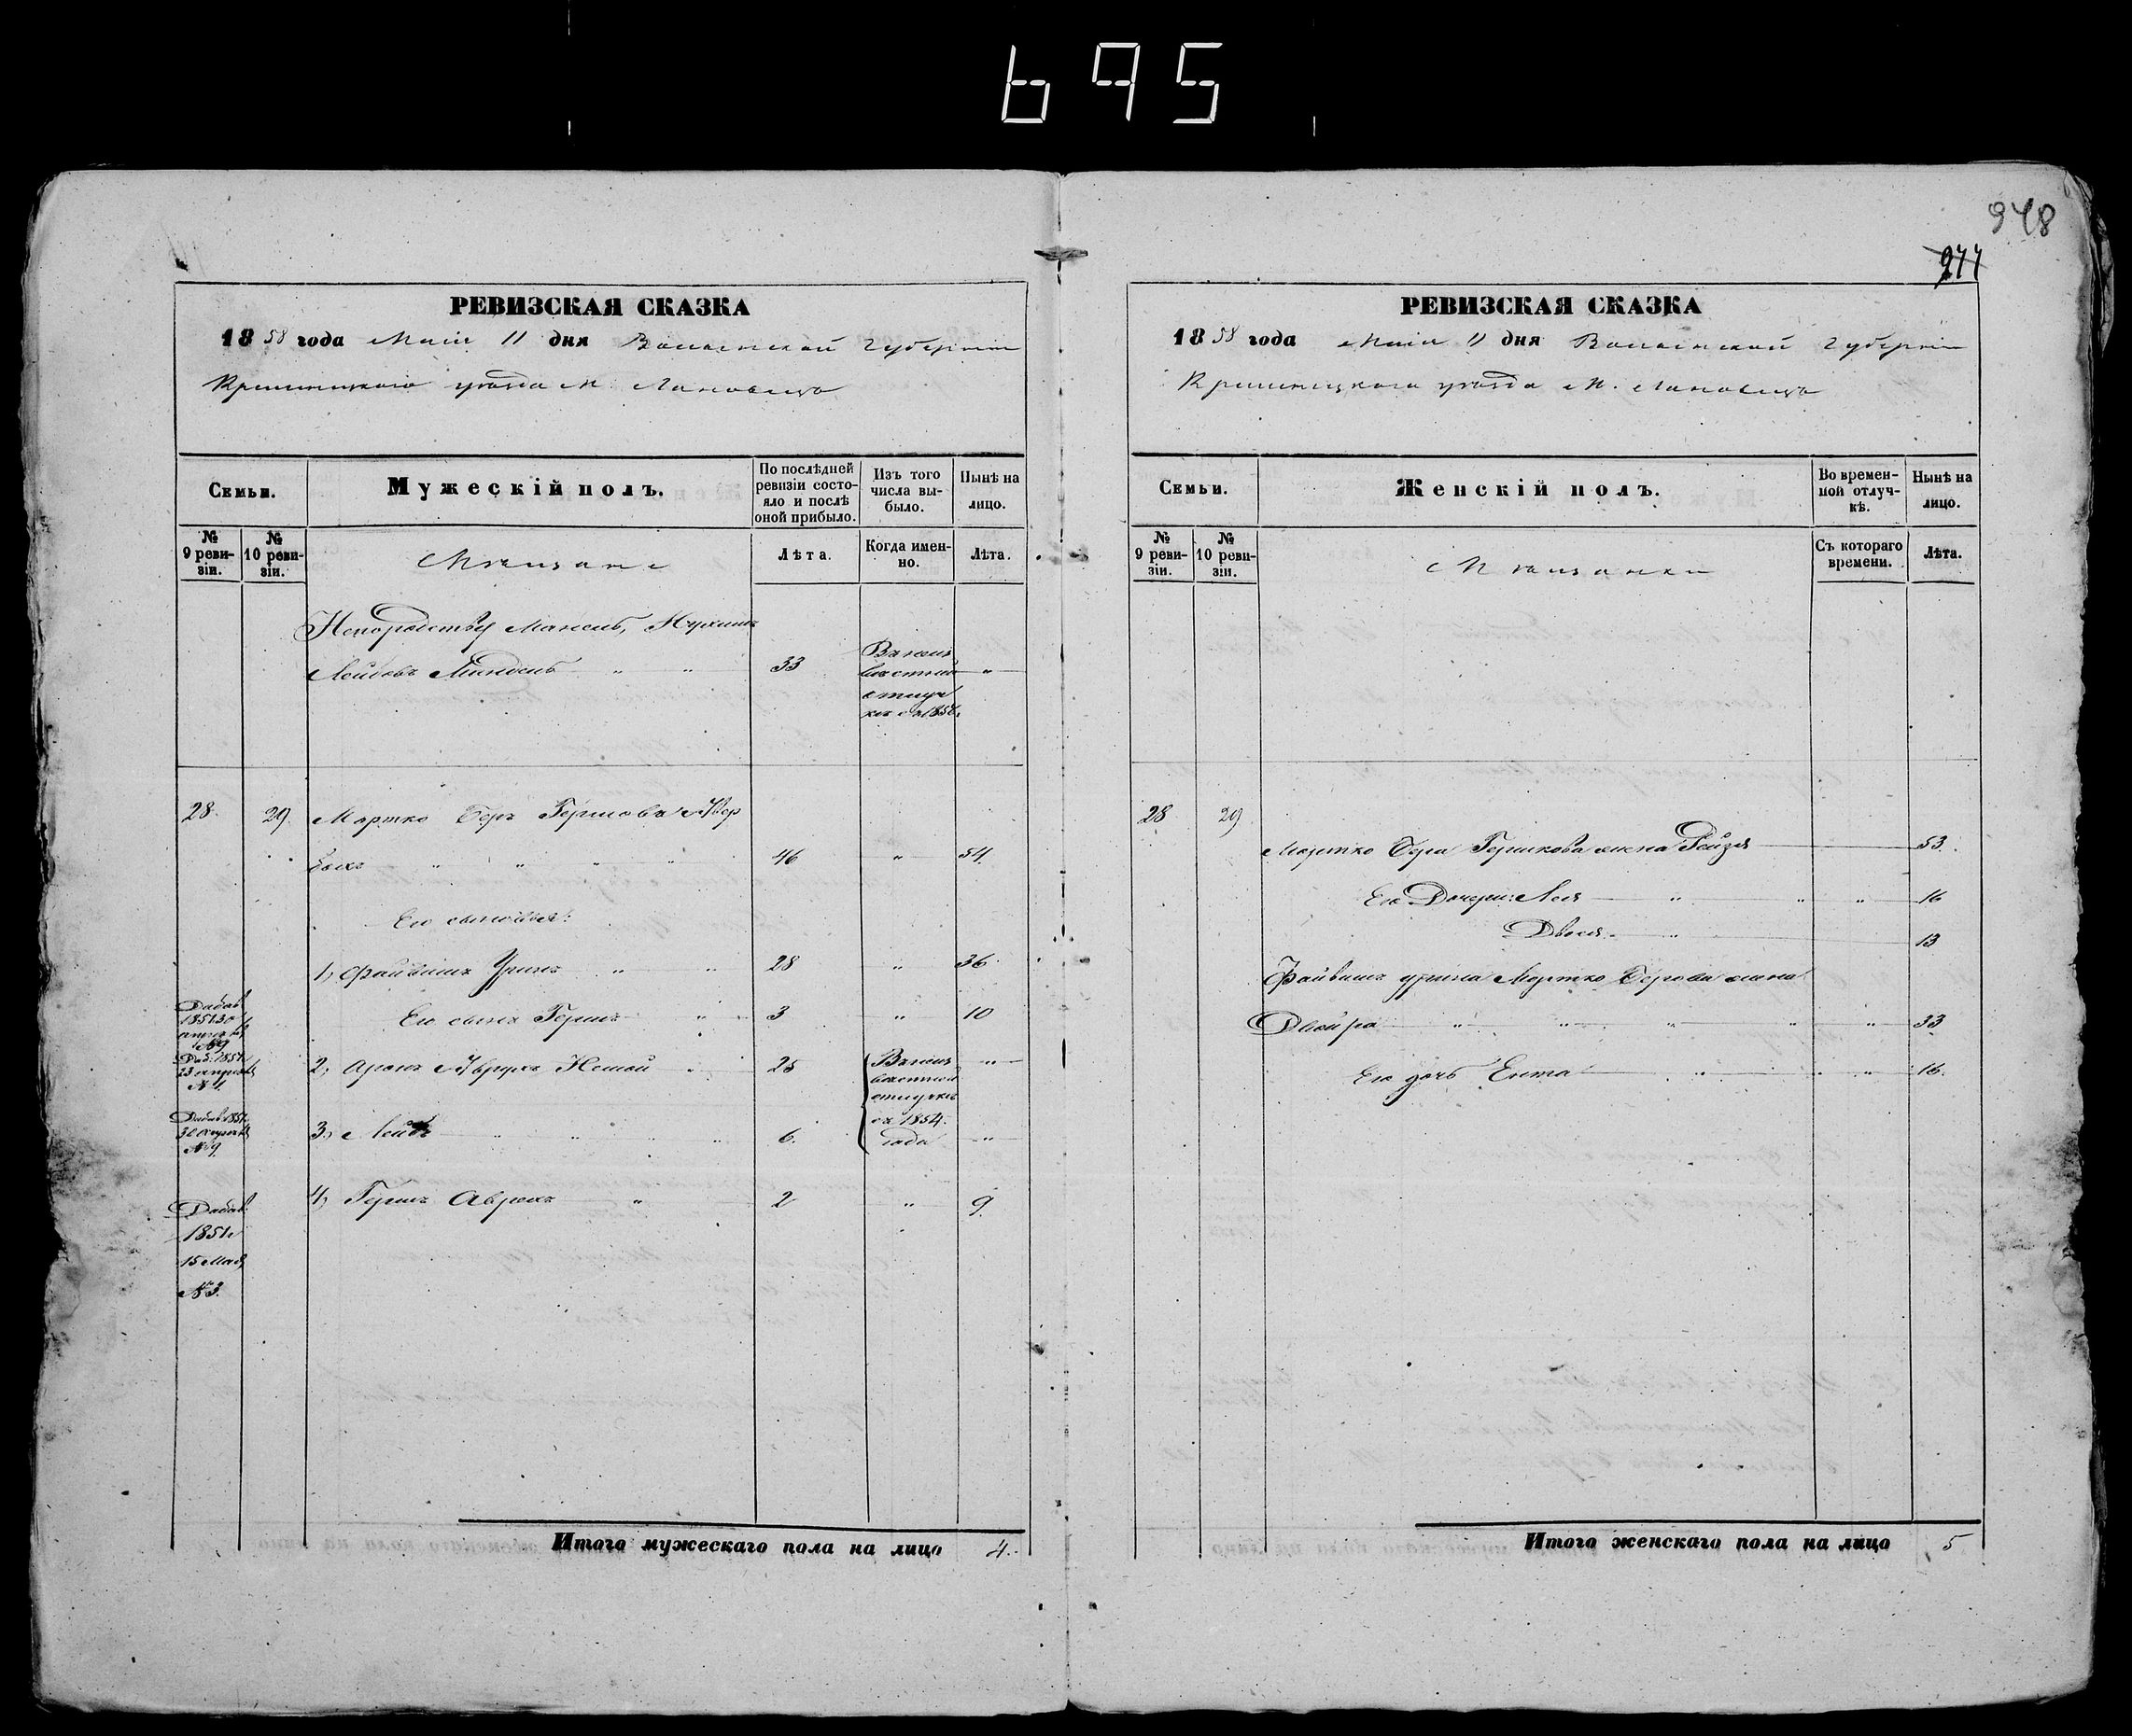 695
948
277
РЕВИЗСКАЯ СКАЗКА
1858 года Маія 11 дня Волынской Губерніи
Кременецкого уѣзда м. Лановецъ
Семьи.
Мужескій полъ.
По послѣдней ревизіи состояло и послѣ оной прибыло.
Изъ того числа выбыло.
Нынѣ на лицо.
№ 9 ревизіи.
№ 10 ревизіи.
Мѣщане
Лѣта.
Когда именно.
Лѣта.
Лейбовъ 33
28. 29. Мортко Беръ Гершковъ
46 " 54.
Его сыновья:
1, Файвишъ 28 " 36.
Добав. 1851 30 №9
Его сынъ Гершъ 3 " 10
Доб. 1851 23 №1.
2, 25 "
съ 1854. года
Добав 1851 30 №9
3, Лейба 6. "
4, Гершъ Аврумъ " 2 " 9.
Добав.
1851.
15 Мая
№3.
Итого мужескаго пола на лицо 4.
РЕВИЗСКАЯ СКАЗКА
1858 года Маія 11 дня Волынской Губерніи
Кременецкого уѣзда м. Лановецъ
Семьи.
Женскій полъ.
Во временной отлучкѣ.
Нынѣ на лицо.
№ 9 ревизіи.
№ 10 ревизіи.
Мѣщанки
Съ котораго времени.
Лѣта.
28 29
Мортко Бера Гершкова жена Рейзя 53.
Его Дочери: Лея " " " 16
Двося " 13
Файвиша Мортко Берова жена
Двойра " " " " " 33
Его дочь Ента " " " 16.
Итого женскаго пола на лицо 5